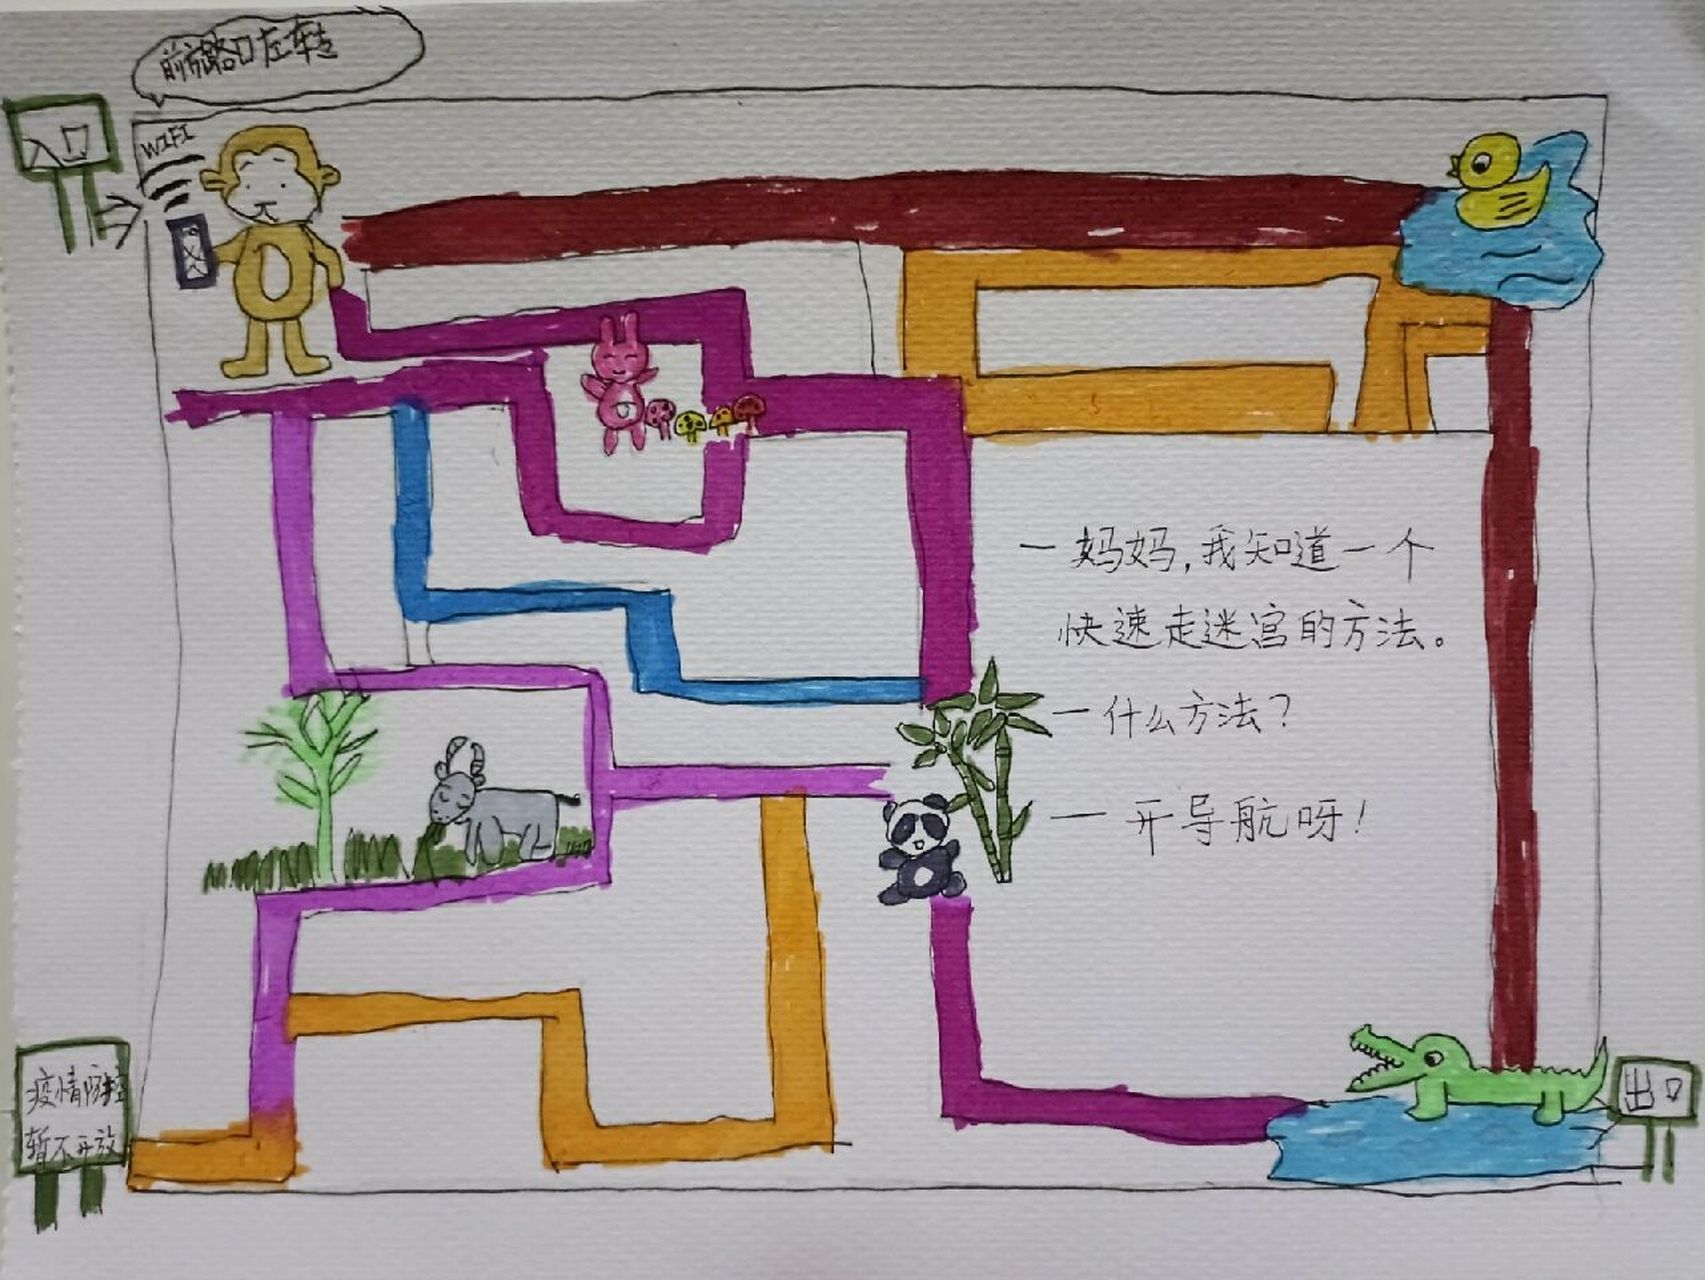 前方路口左转
入口
WIFI
一妈妈,我知道一个
快速走迷宫的方法。
一什么方法?
一开导航呀!
疫情防控
暂不开放
出口